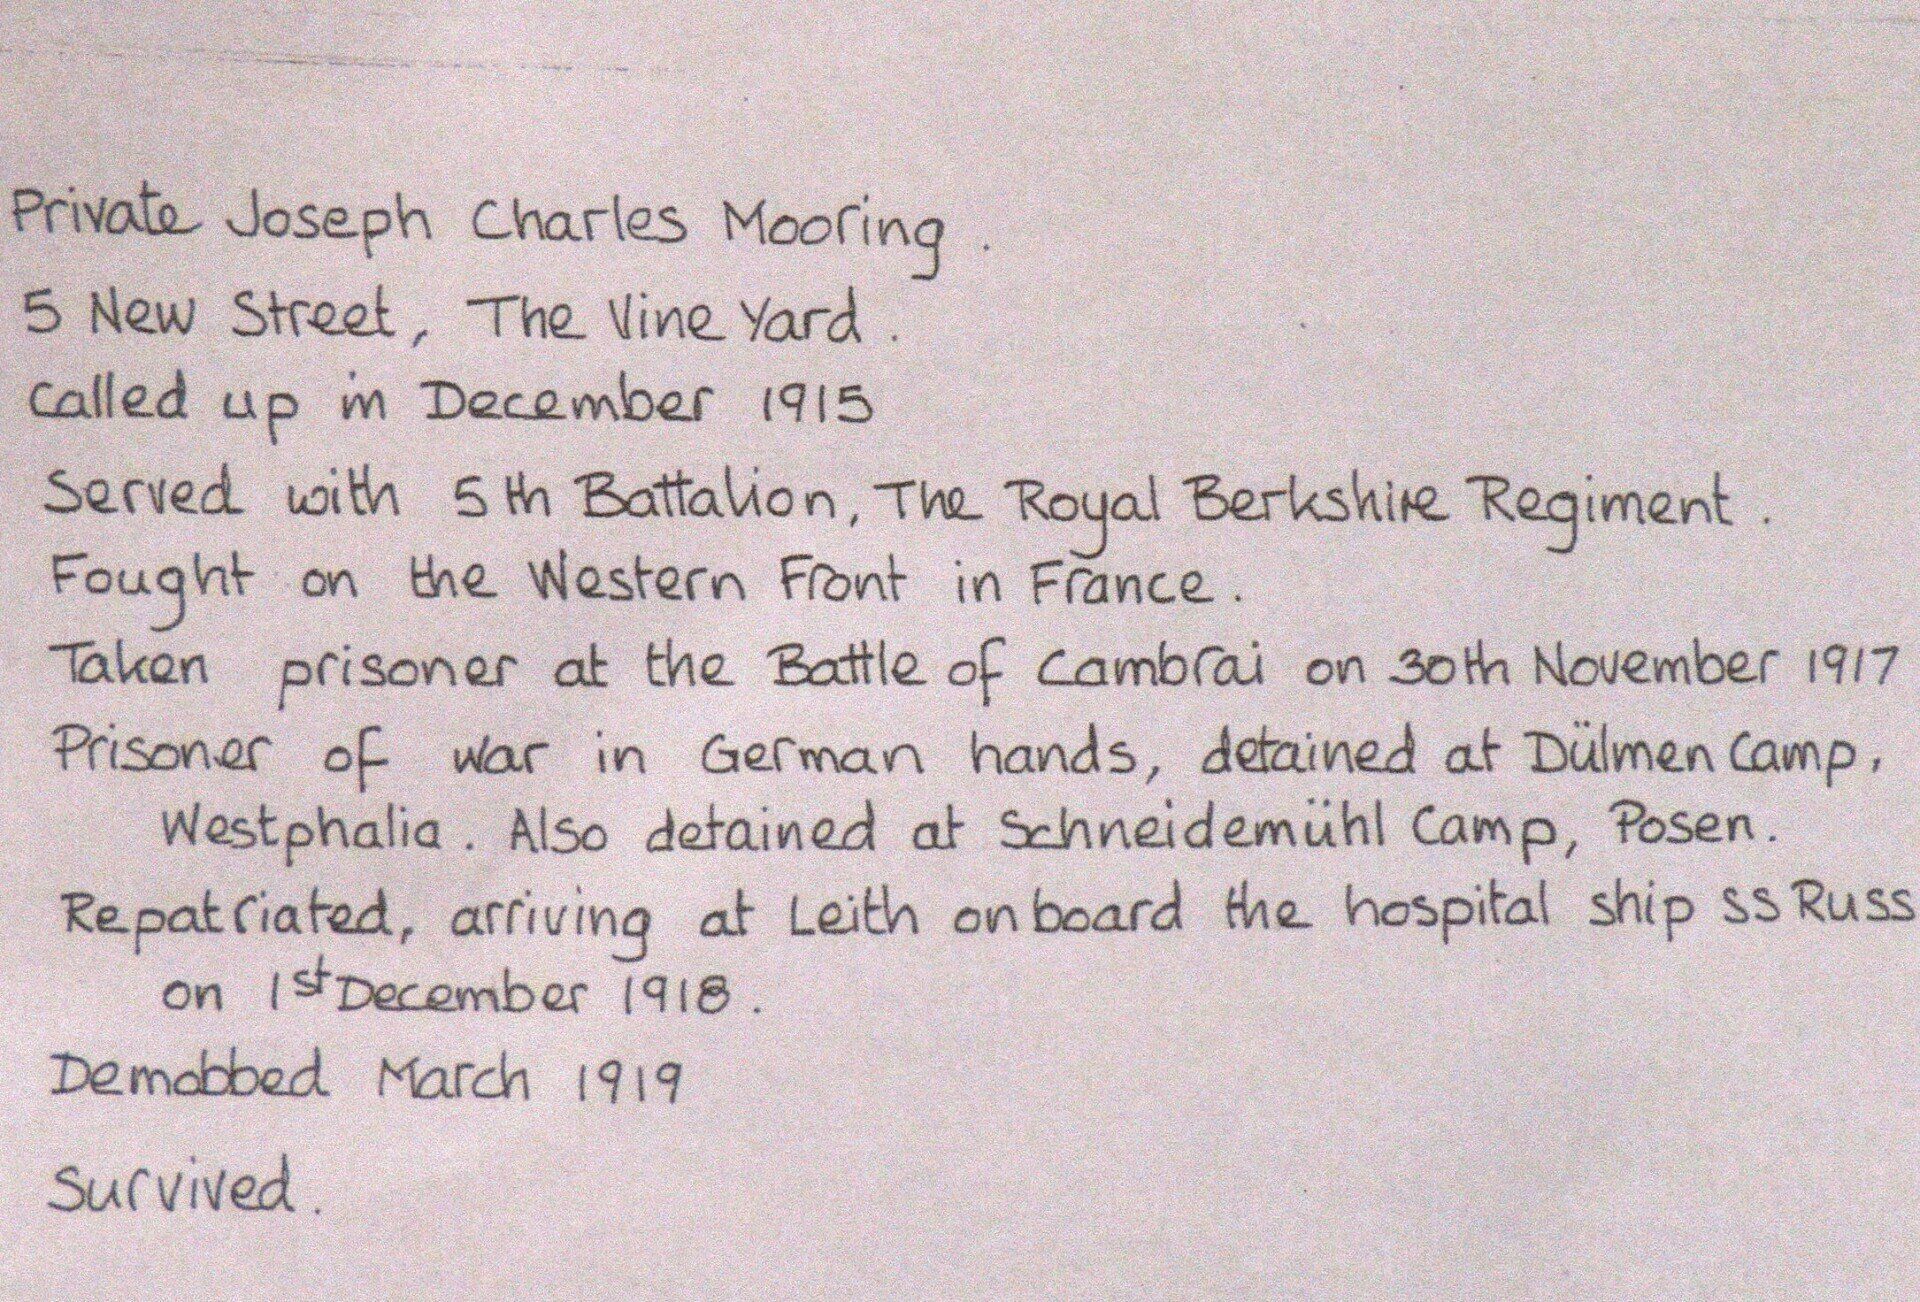 Private Joseph Charles Mooring.
5 New Street, The Vine Yard.
Called up in December 1915
Served with 5th Battalion, The Royal Berkshire Regiment.
Fought on the Western Front in France.
Taken prisoner at the Battle of Cambrai on 30th November 1917
Prisoner of war in German hands, detained at Dülmen Camp,
Westphalia. Also detained at Schneidemühl Camp, Posen.
Repatriated, arriving at Leith on board the hospital ship SS Russ
on 1st December 1918.
Demobbed March 1919
Survived.